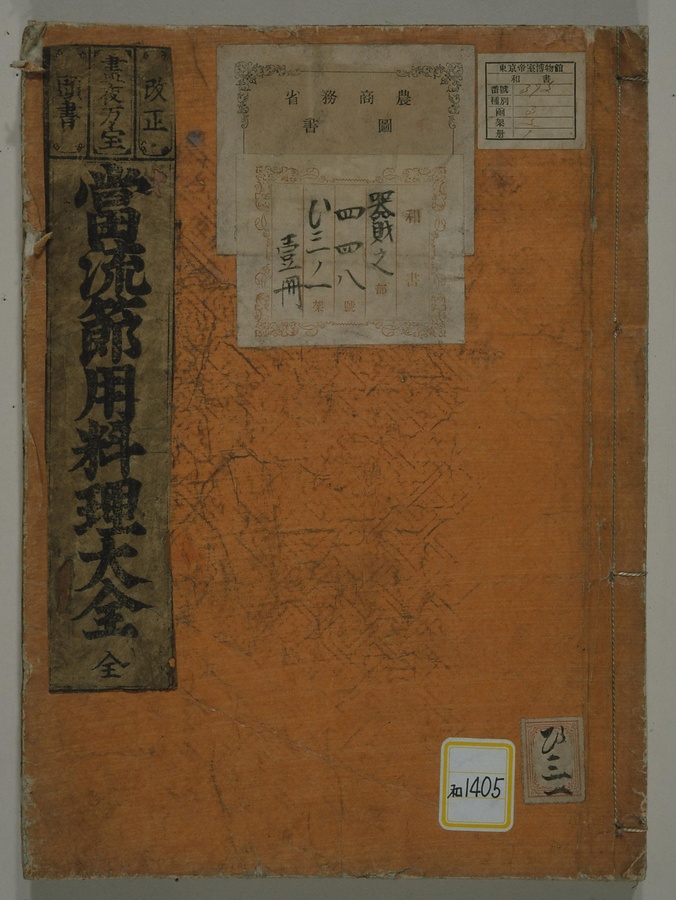 改正
晝夜万宝
書
當流節用料理大全
全
農商務省
圖書
和書
器財之部
四四八號
ひ三ノ一架
壹冊
東京帝室博物館
和書
番號
種別
函
架
冊
ひ三一
和1405